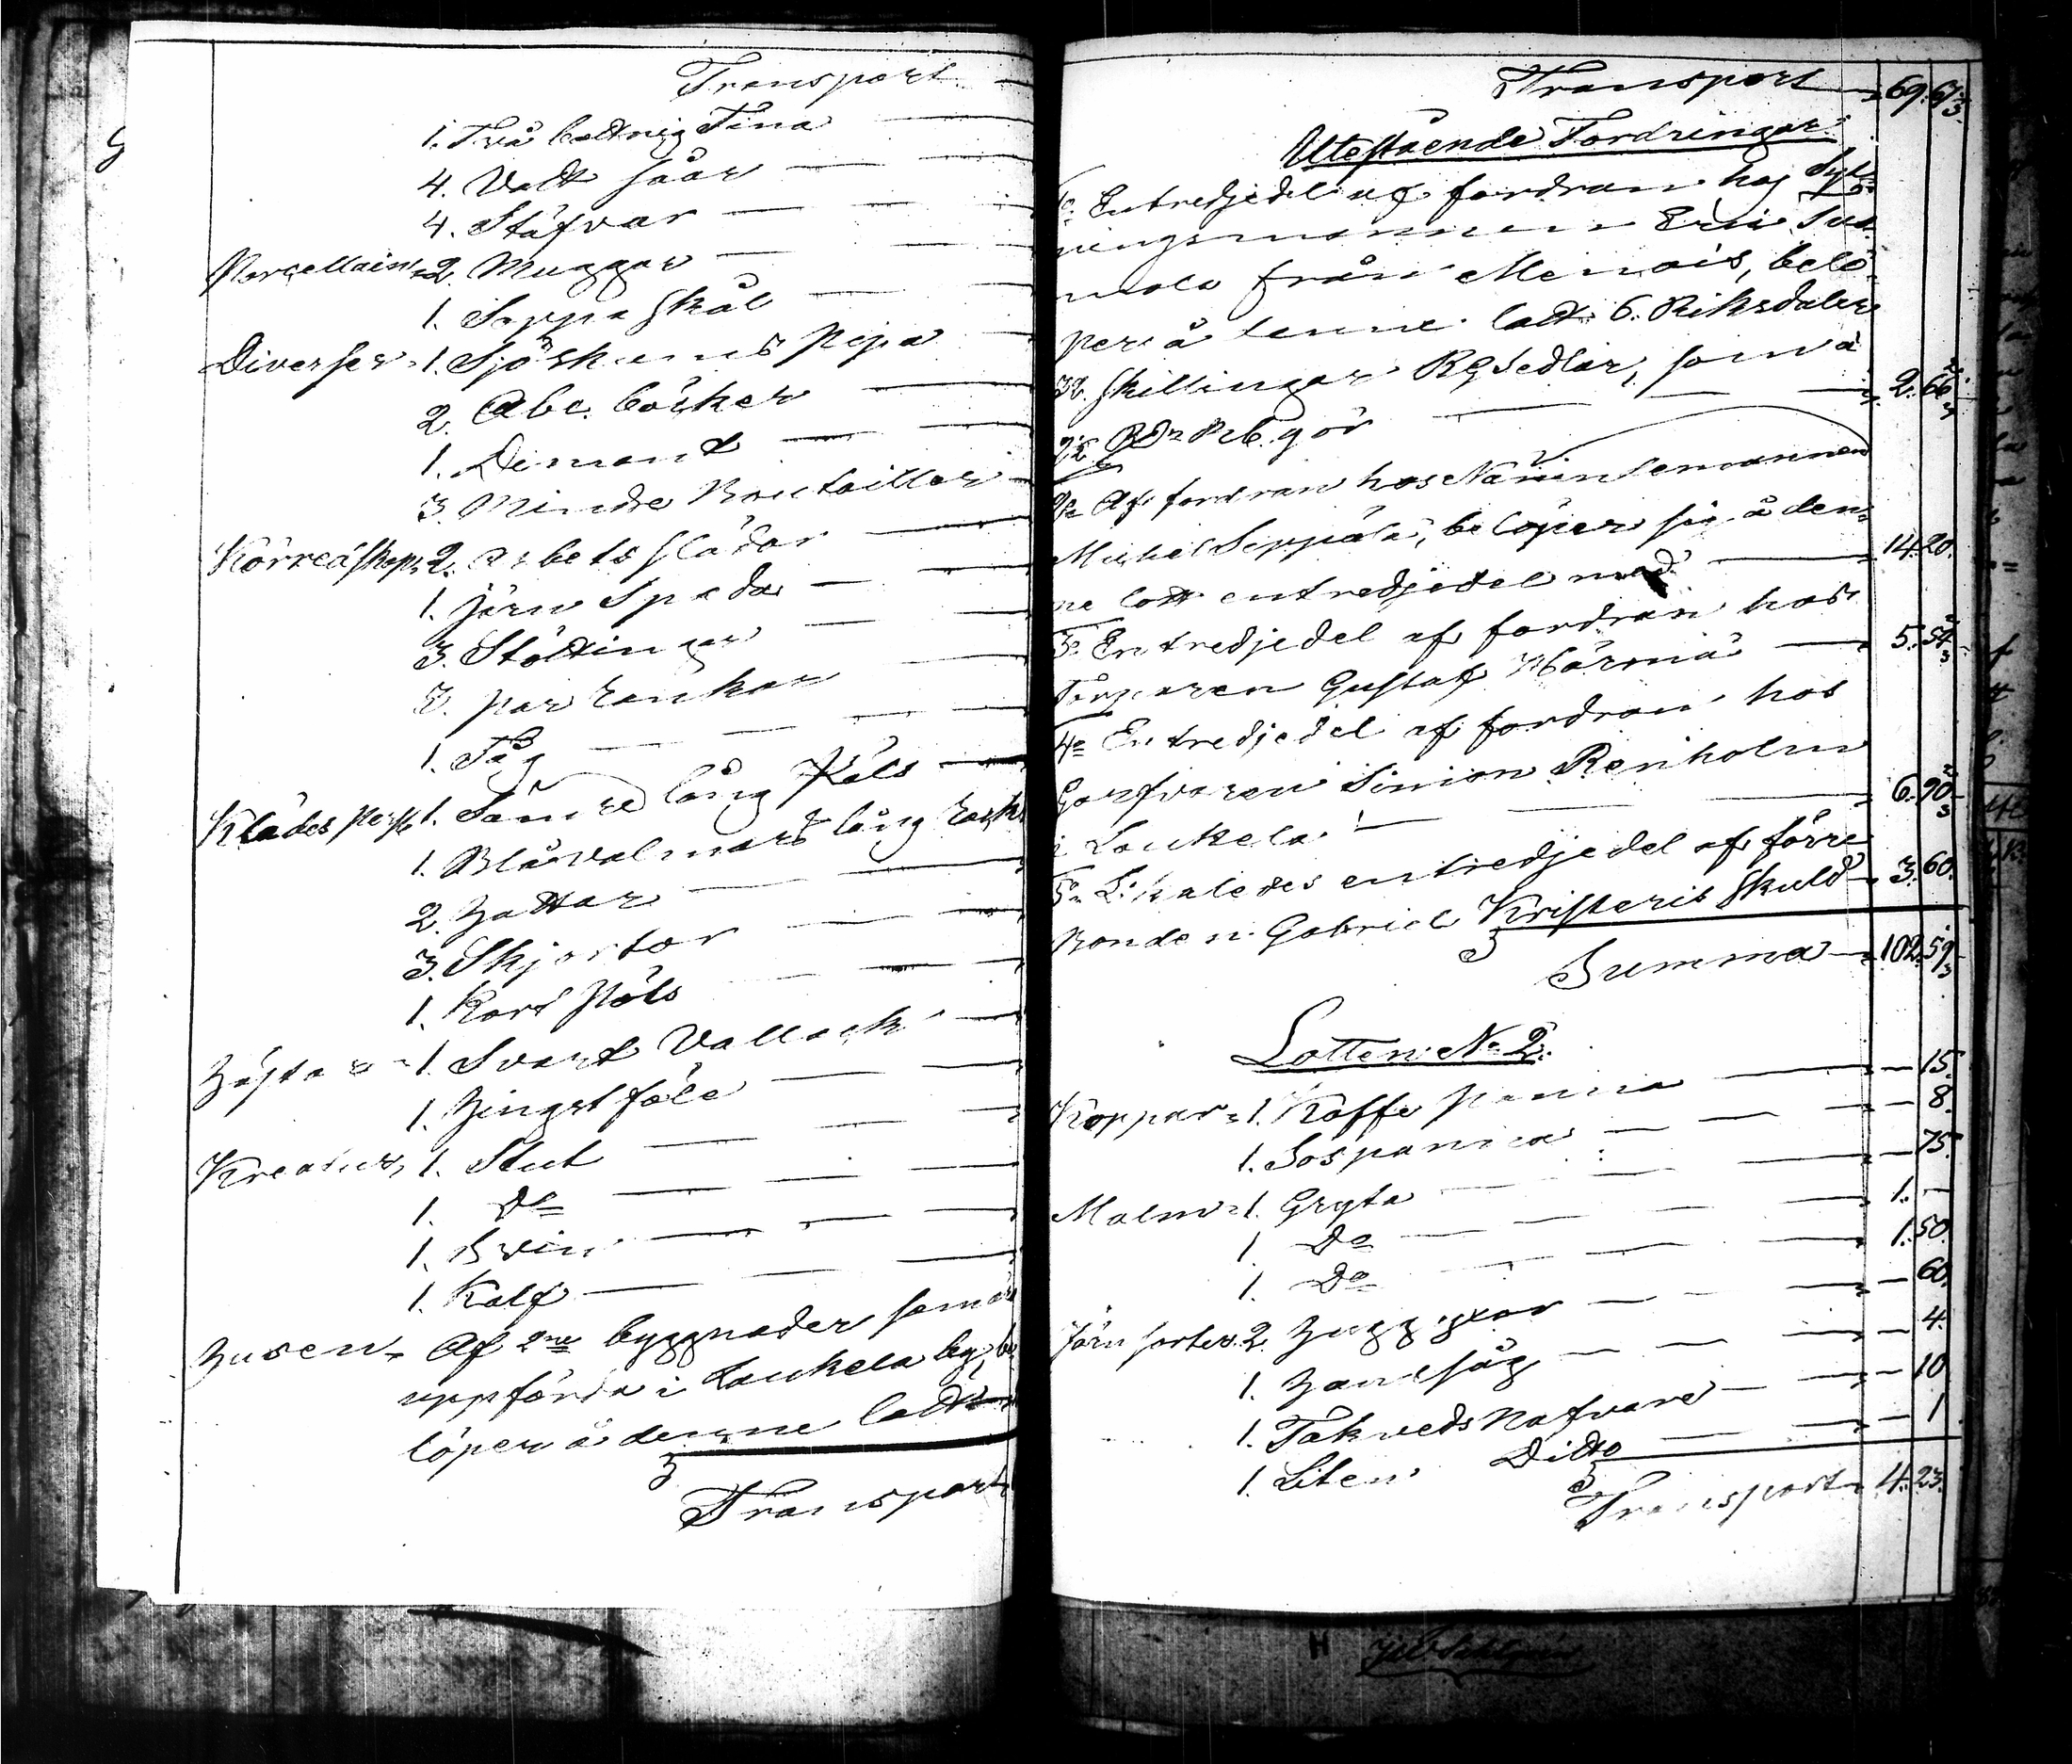 Transport
1. Två bottnig Tina
4. Vatt såar
4. Stäfvar
Porcellain 2. Muggar
1. Soppa skål
Diverser 1. Sjöskums Pipa
2. Abc. böcker
1. Demant
3. Mindre Bouteiller
Körredskap 2. Arbets slädar
1. Järn Spada
3. Stöttingar
3. par rankor
1. Tåg
Klädes Pers. 1. Sämre lång Päls
1. Blå valmars lång rock
2. Hattar
3. Skjortor
1. Kort Päls
Hästar 1. Svart Vallack
1. Hingst föle
Kreatur, 1. Stut
1. Do
1. Svin
1. Kalf
Husen, Af 2ne byggnader som ä
uppförda i Laukela by, be
löper å denne lott
Transport
Transport 69. 67
Utestående Fordringar
1o Entredjedel af fordran hos
ningsmannen
mola från Menois, belö
per å denne lott 6. Riksdaler
32. Skillingar RgSedlar, som à
Rdr Rub. gör 2. 66 2/3
2o Af fordran hos Nämndemannen
Michel Seppälä, belöper sig å den
ne lott entredjedel med 14. 20.
3o Entredjedel af fordran hos
Torparen Gustaf Härmä 5. 54 2/3
4o Entredjedel af fordran hos
Garfvaren Simon Renholm
i Laukela 6. 90 2/3
5o Likaledes entredjedel af förre
Bonden Gabriel Kristeris Skuld 3. 60.
Summa 102. 59
Lotten No 2.
Koppar 1. Kaffe panna 15.
1. Såspanna 8.
Malm 1. Gryta 75.
1. Do 1. —
1. Do 1. 50.
Järn sorter 2. Hugg yxor 60.
1. Handsåg 4.
1. Takveds Nafvare 10
1. Liten Ditto 1.
Transport 4. 23.